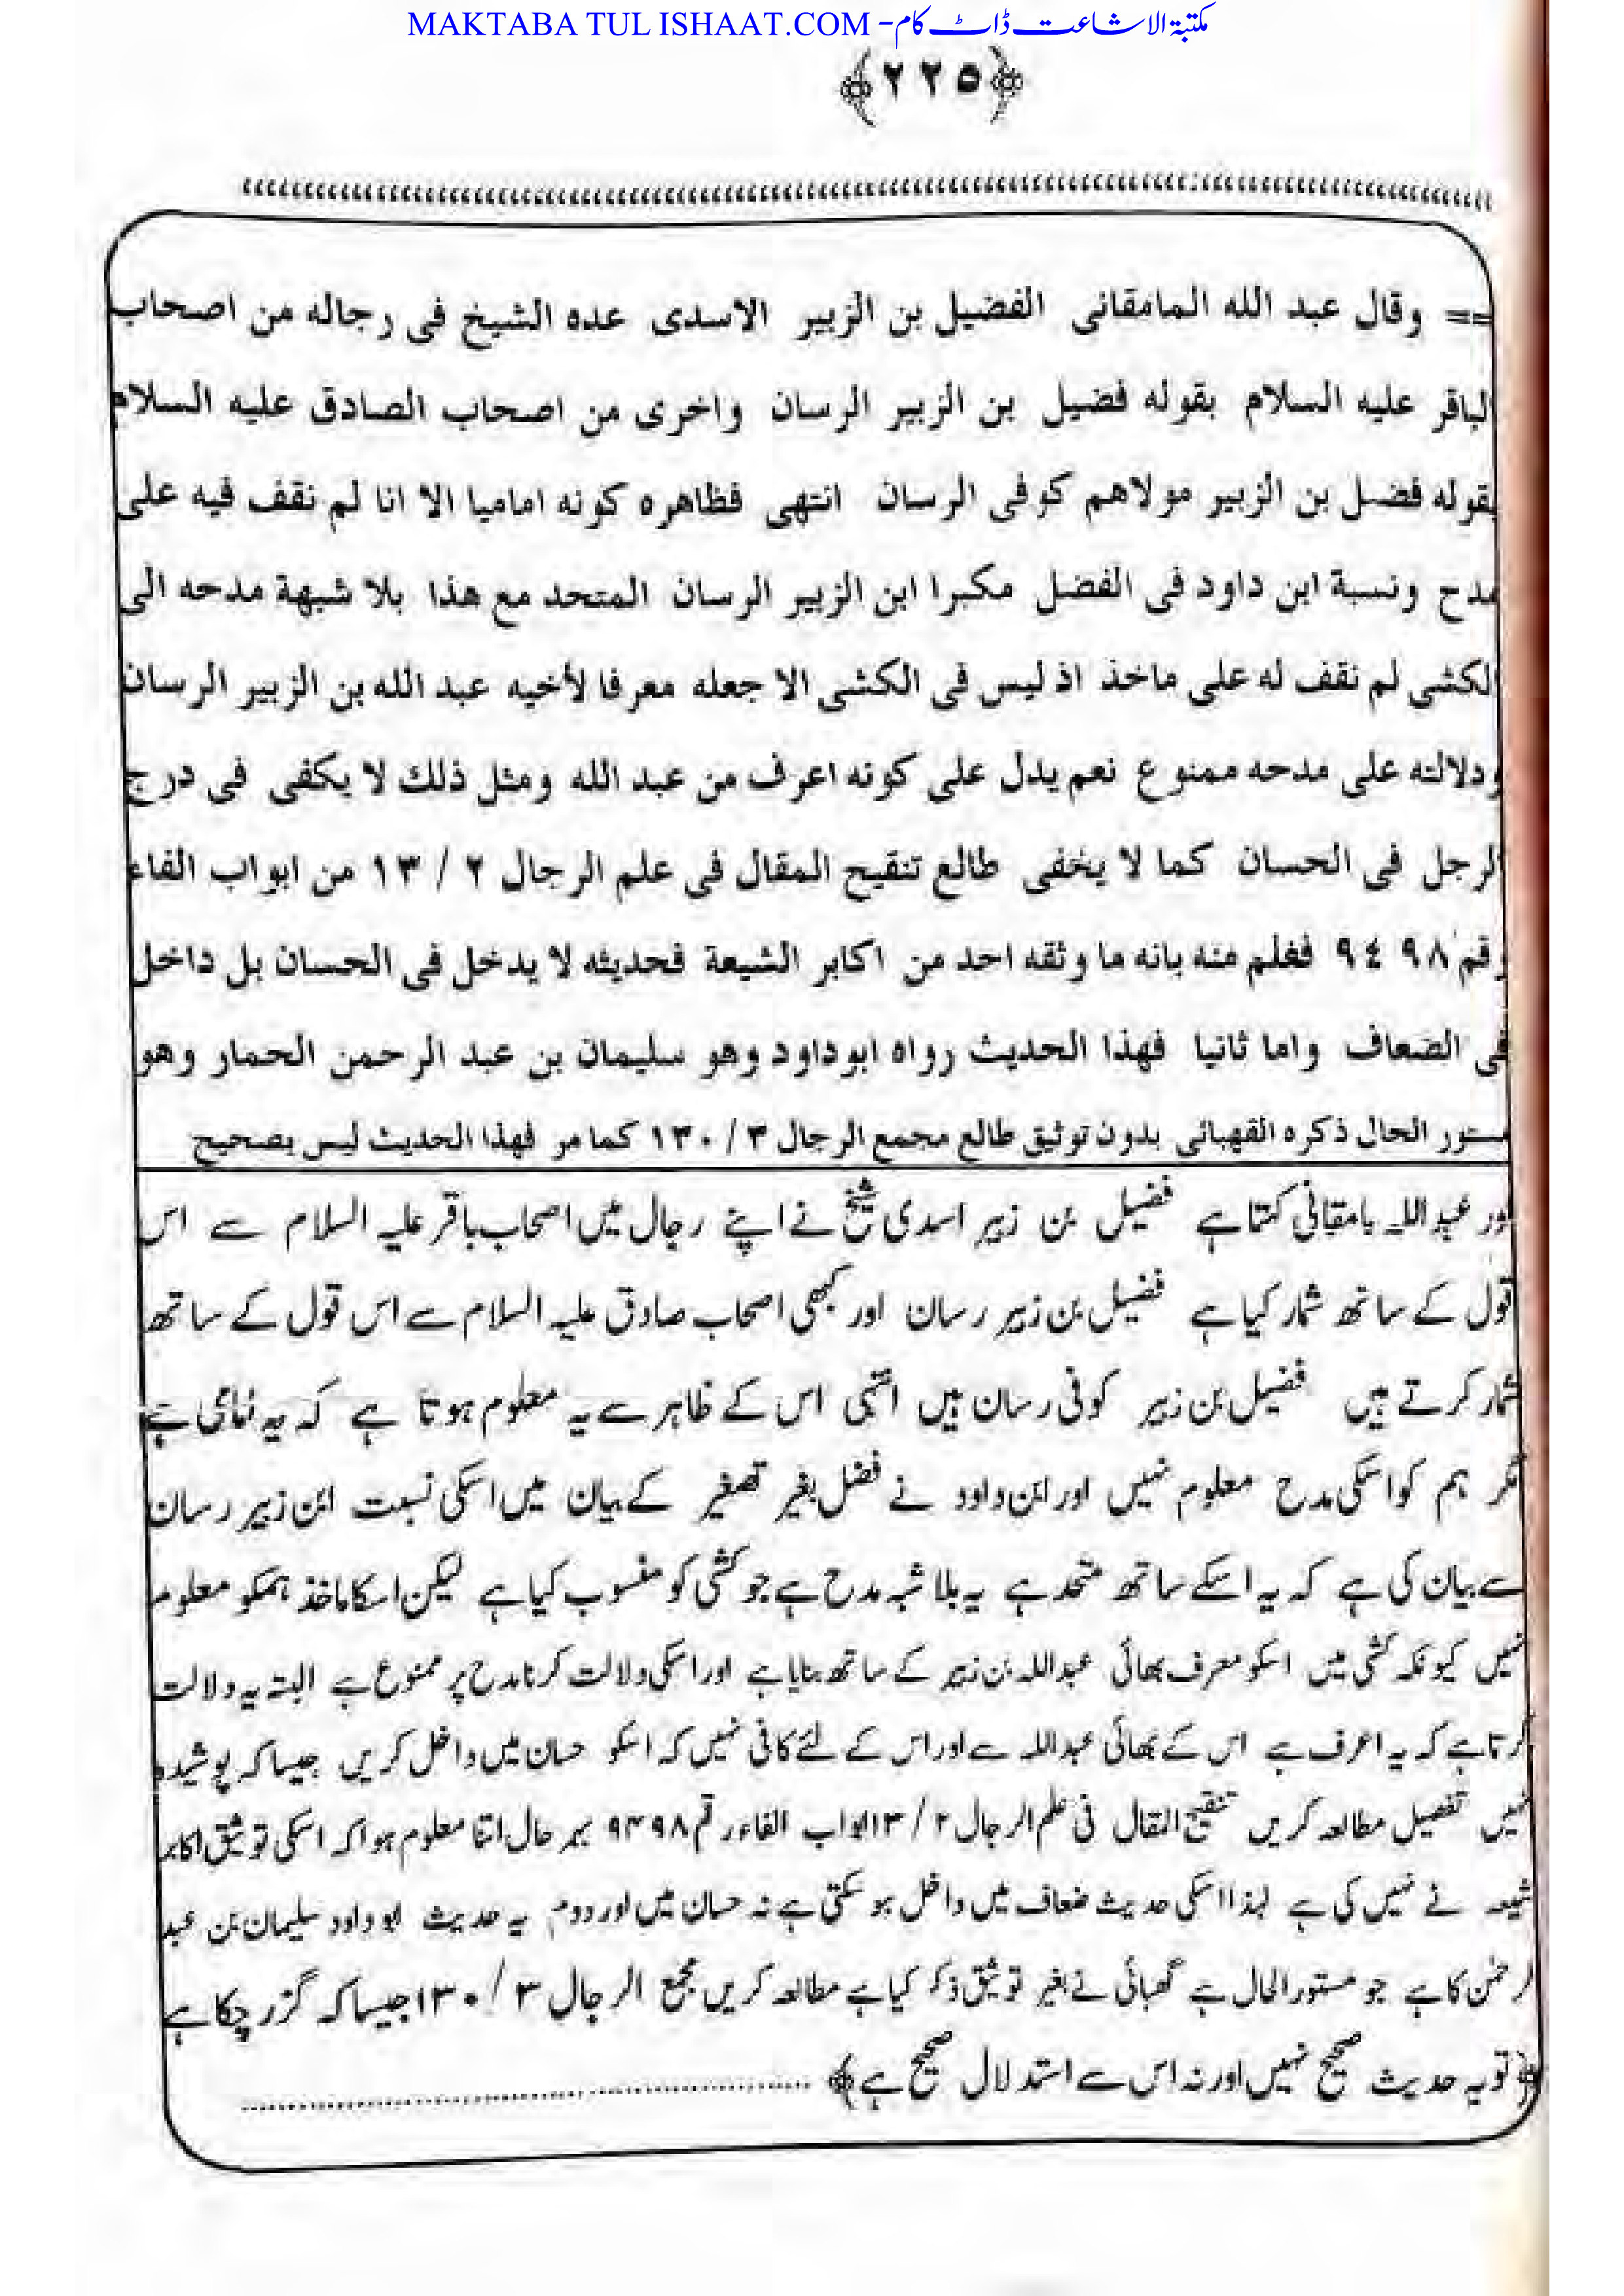 MAKTABA TUL ISHAAT.COM - مکتبۃ الاشاعت ڈاٹ کام
﴿٢٢٥﴾
== وقال عبد الله المامقانى الفضيل بن الزبير الاسدى عده الشيخ فى رجاله من اصحاب
الباقر عليه السلام بقوله فضيل بن الزبير الرسان واخرى من اصحاب الصادق عليه السلام
بقوله فضل بن الزبير مولاهم كوفى الرسان انتهى فظاهره كونه اماميا الا انا لم نقف فيه على
مدح ونسبة ابن داود فى الفضل مكبرا ابن الزبير الرسان المتحد مع هذا بلا شبهة مدحه الى
الكشى لم نقف له على ماخذ اذ ليس فى الكشى الا جعله معرفا لأخيه عبد الله بن الزبير الرسان
ودلالته على مدحه ممنوع نعم يدل على كونه اعرف من عبد الله ومثل ذلك لا يكفى فى درج
الرجل فى الحسان كما لا يخفى طالع تنقيح المقال فى علم الرجال ٢ / ١٣ من ابواب الفاء
رقم ٩٤٩٨ فعلم منه بانه ما وثقه احد من اكابر الشيعة فحديثه لا يدخل فى الحسان بل داخل
فى الضعاف واما ثانيا فهذا الحديث رواه ابو داود وهو سليمان بن عبد الرحمن الحمار وهو
مستور الحال ذكره القهبائى بدون توثيق طالع مجمع الرجال ٣ / ١٣٠ كما مر فهذا الحديث ليس بصحيح
اور عبد اللہ مامقانی کہتا ہے فضیل بن زبیر اسدی شیخ نے اپنے رجال میں اصحاب باقر علیہ السلام سے اس
قول کے ساتھ شمار کیا ہے فضیل بن زبیر رسان اور کبھی اصحاب صادق علیہ السلام سے اس قول کے ساتھ
شمار کرتے ہیں فضیل بن زبیر کوفی رسان ہیں انتہی اس کے ظاہر سے یہ معلوم ہوتا ہے کہ یہ ہے
مگر ہم کو اسکی مدح معلوم نہیں اور ابن داود نے فضل بغیر تصغیر کے بیان میں اسکی نسبت ابن زبیر رسان
سے بیان کی ہے کہ یہ اسکے ساتھ متحد ہے یہ بلا شبہ مدح ہے جو کشی کو منسوب کیا ہے لیکن اسکا ماخذ ہمکو معلوم
نہیں کیونکہ کشی میں اسکو معرف بھائی عبد اللہ بن زبیر کے ساتھ بنایا ہے اور اسکی دلالت کرنا مدح پر ممنوع ہے البتہ یہ دلالت
کرتا ہے کہ یہ اعرف ہے اس کے بھائی عبد اللہ سے اور اس کے لئے کافی نہیں کہ اسکو حسان میں داخل کریں جیسا کہ پوشیدہ
نہیں تفصیل مطالعہ کریں تنقیح المقال فی علم الرجال ٢ / ١٣ ابواب الفاء رقم ٩٤٩٨ بہر حال اتنا معلوم ہوا کہ اسکی توثیق اکابر
شیعہ نے نہیں کی ہے لہذا اسکی حدیث ضعاف میں داخل ہو سکتی ہے نہ حسان میں اور دوم یہ حدیث ابو داود سلیمان بن عبد
الرحمن کا ہے جو مستور الحال ہے قھبائی نے بغیر توثیق ذکر کیا ہے مطالعہ کریں مجمع الرجال ٣ / ١٣٠ جیسا کہ گزر چکا ہے
﴿ تو یہ حدیث صحیح نہیں اور نہ اس سے استدلال صحیح ہے ﴾